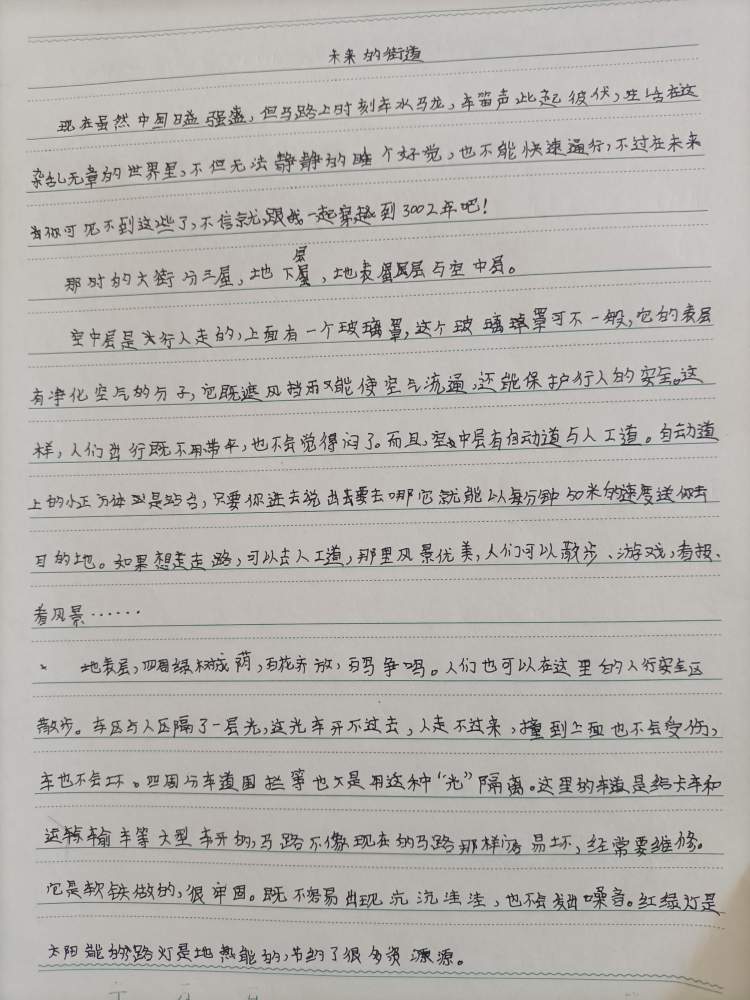 未来的街道
现在虽然中国日益强盛,但马路上时刻车水马龙,车笛声此起彼伏,生活在这
杂乱无章的世界里,不但无法静静的睡个好觉,也不能快速通行,不过在未来
当你可见不到这些了,不信就跟我一起穿越到3002年吧!
那时的大街分三层,地下层,地表层与空中层。
空中层是为行人走的,上面有一个玻璃罩,这个玻璃罩可不一般,它的表层
有净化空气的分子,它既遮风挡雨又能使空气流通,还能保护行人的安全。这
样,人们出行既不用带伞,也不会觉得闷了。而且,空中层有自动道与人工道。自动道
上的小正方体就是站台,只要你进去说出去要去哪它就能以每分钟50米的速度送你去
目的地。如果想走走路,可以去人工道,那里风景优美,人们可以散步、游戏,看报、
看风景······
地表层,四周绿树成荫,百花齐放,百鸟争鸣。人们也可以在这里的人行安全区
散步。车区与人区隔了一层光,这光车开不过去,人走不过来,撞到上面也不会受伤,
车也不会坏。四周分车道围栏等也是用这种“光”隔离。这里的车道是给卡车和
运输车等大型车开的,马路不像现在的马路那样容易坏,经常要维修。
它是软铁做的,很牢固。既不容易出现坑坑洼洼,也不会发出噪音。红绿灯是
太阳能的路灯是地热能的,节约了很多资源。